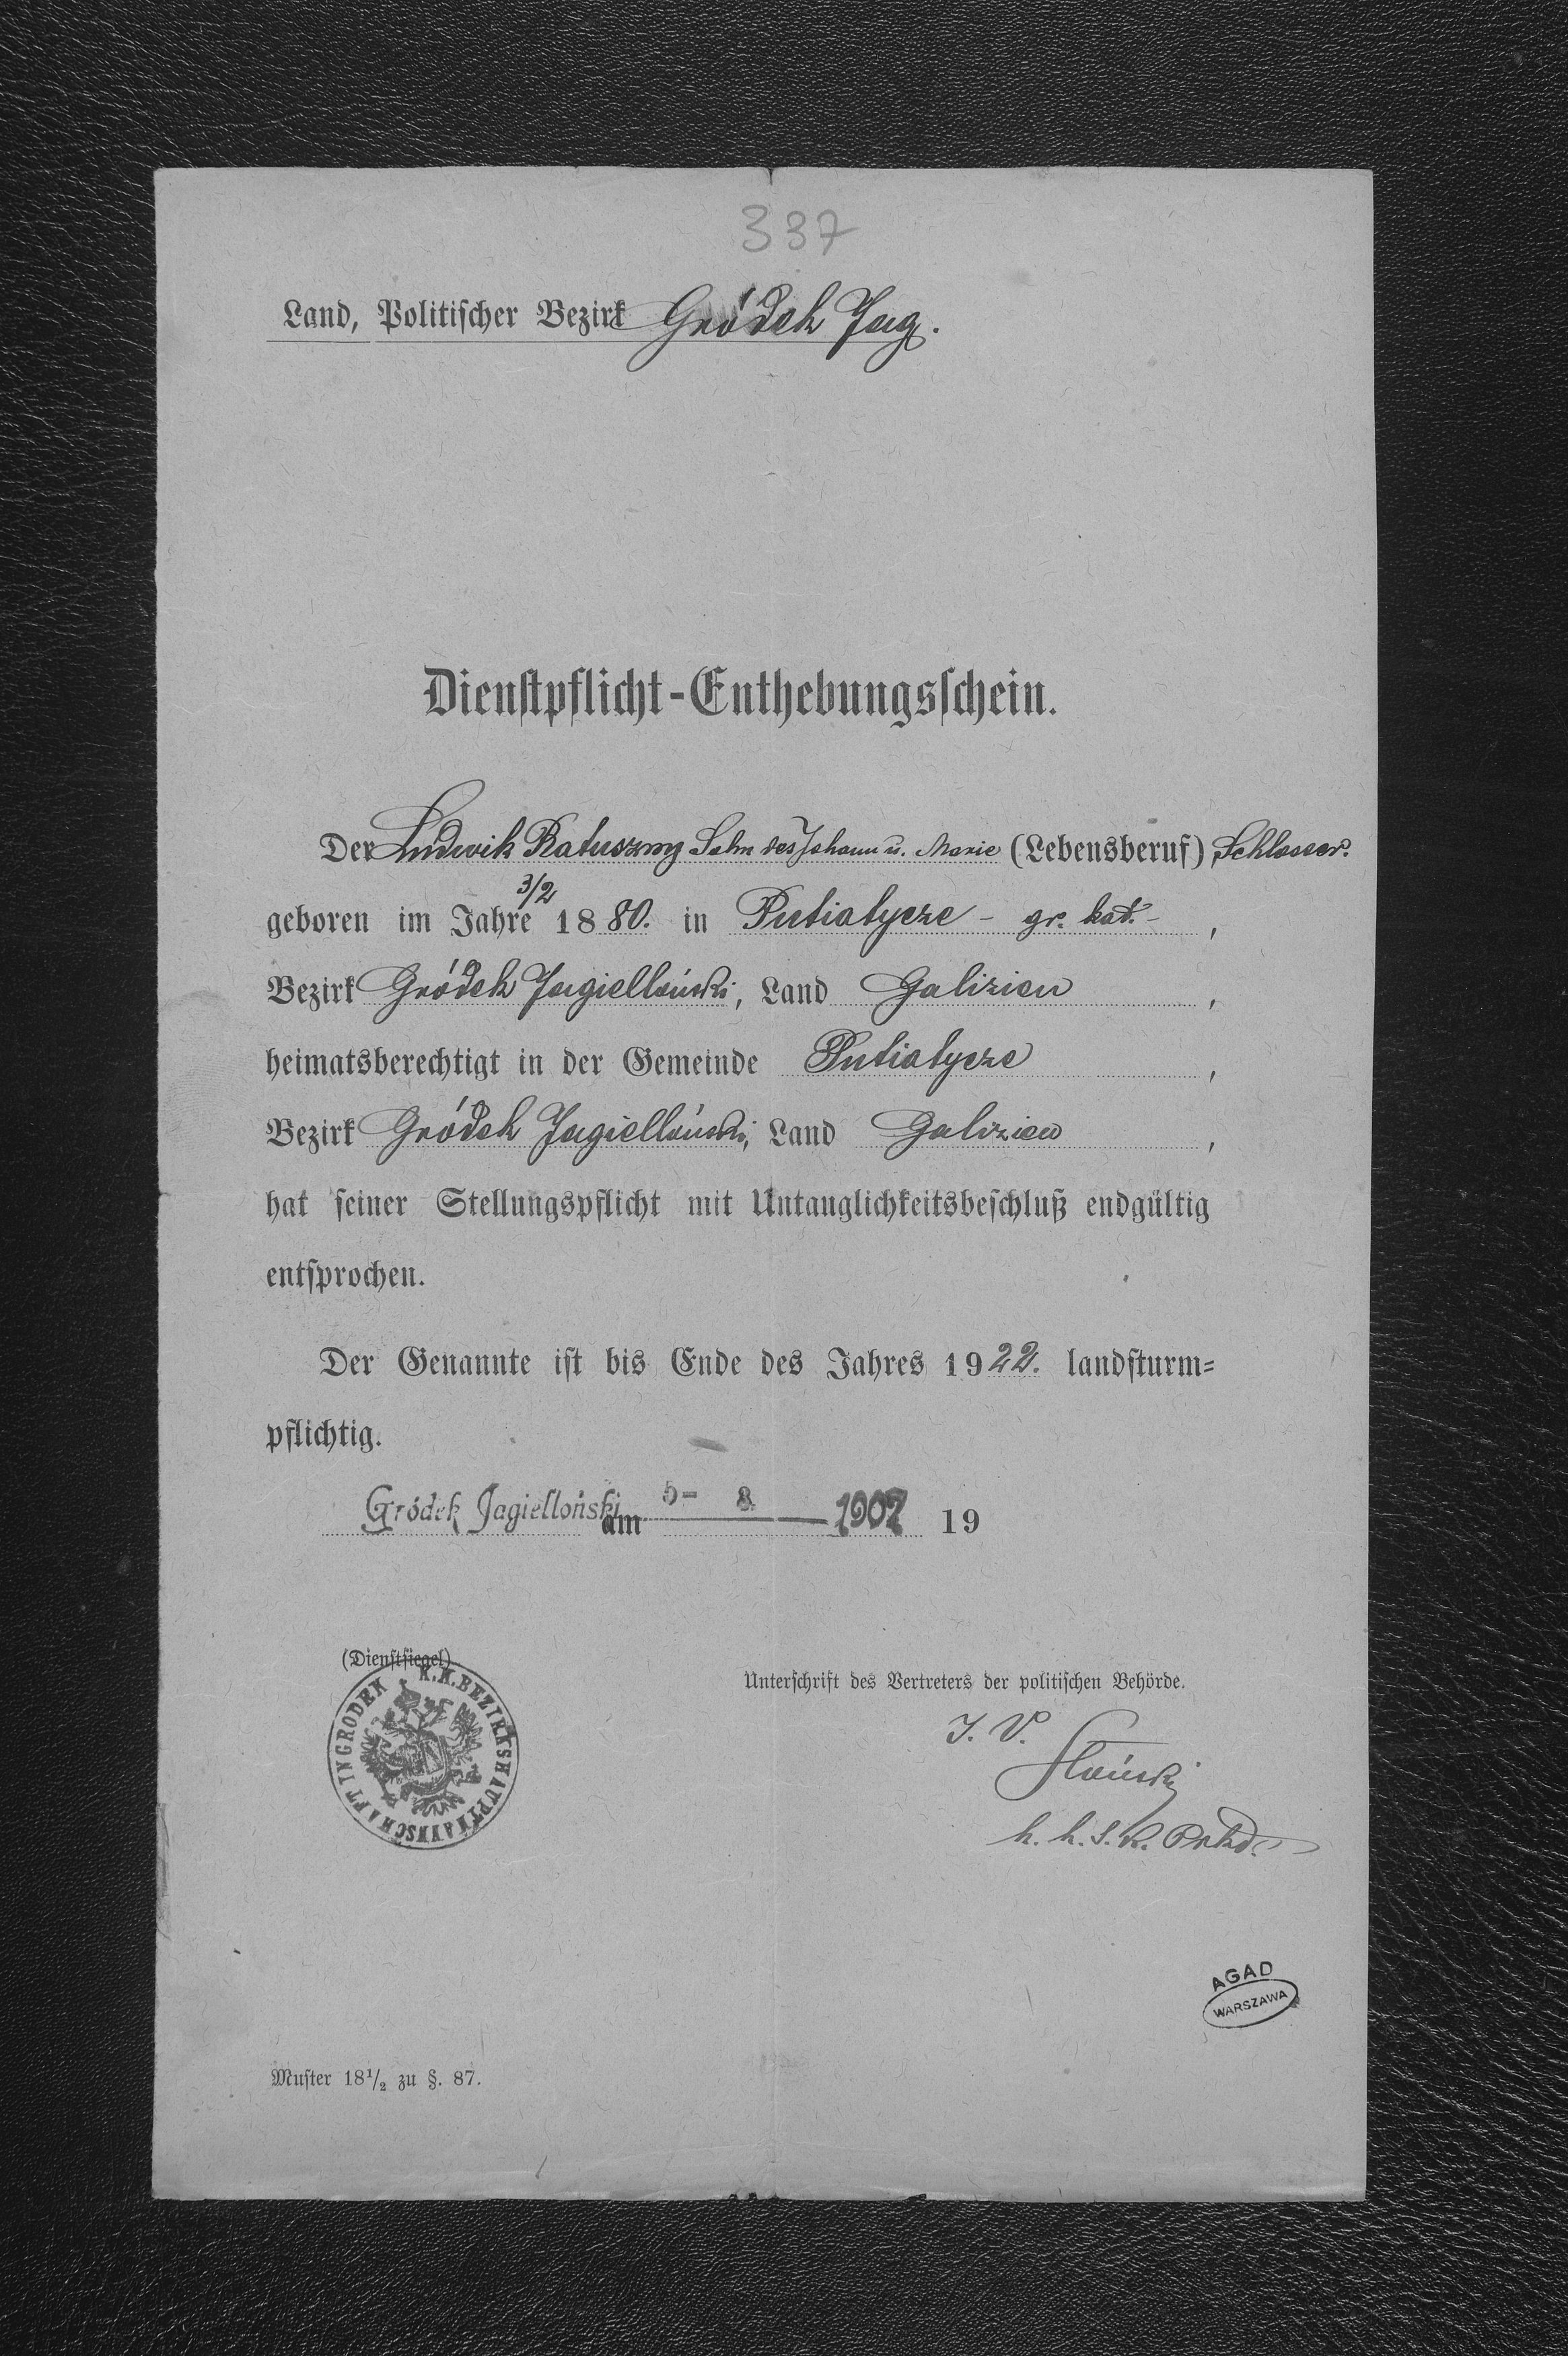 337
Land, Politischer Bezirk Gródek Jag.
Dienstpflicht-Enthebungsschein.
Der Ludwik Ratuszny Sohn des Johann u. Marie (Lebensberuf) Schlosser.
3/2
geboren im Jahre 1880. in Putiatycze – gr. kat. –,
Bezirk Gródek Jagielloński, Land Galizien,
heimatsberechtigt in der Gemeinde Putiatycze,
Bezirk Gródek Jagielloński, Land Galizien,
hat seiner Stellungspflicht mit Untauglichkeitsbeschluß endgültig
entsprochen.
Der Genannte ist bis Ende des Jahres 1922. landsturm=
pflichtig.
Gródek Jagielloński am 5- 8. 1907 19
(Dienstsiegel)
K.K. BEZIRKSHAUPTMANNSCHAFT IN GRODEK
Unterschrift des Vertreters der politischen Behörde.
I. V.
AGAD
WARSZAWA
Muster 18 1/2 zu §. 87.